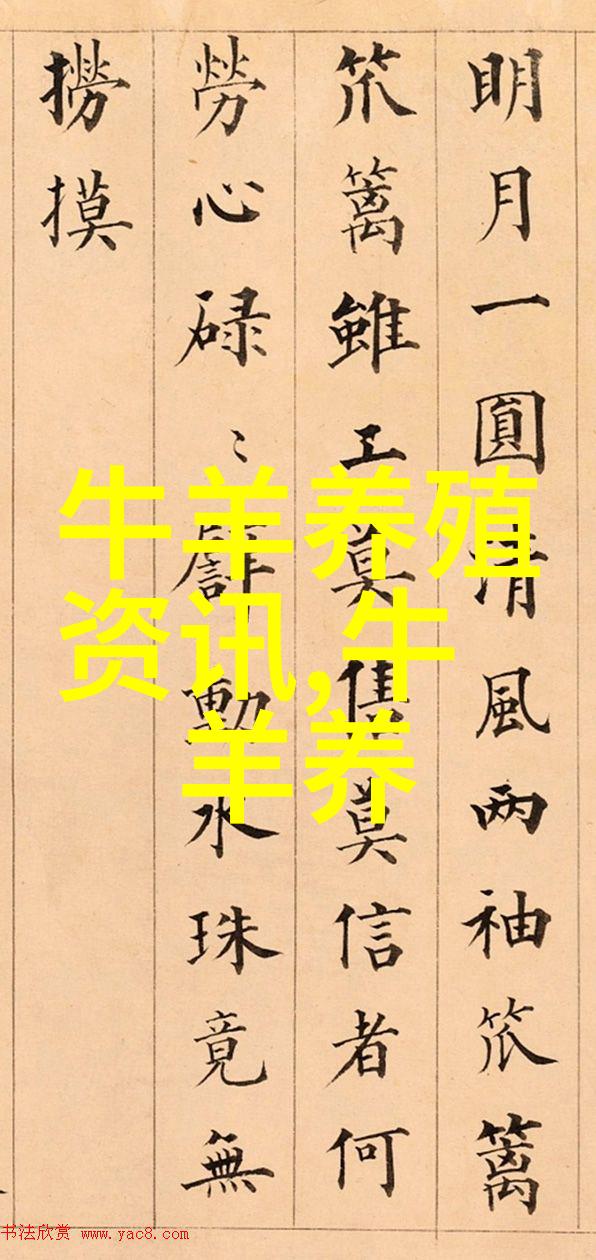 明月一圓清風两袖笊篱
笊篱雖工莫莫信者何
勞心碌〻動水珠竟無
撈摸
牛羊养殖
资讯,牛
羊养
书法欣赏 www.yac8.com